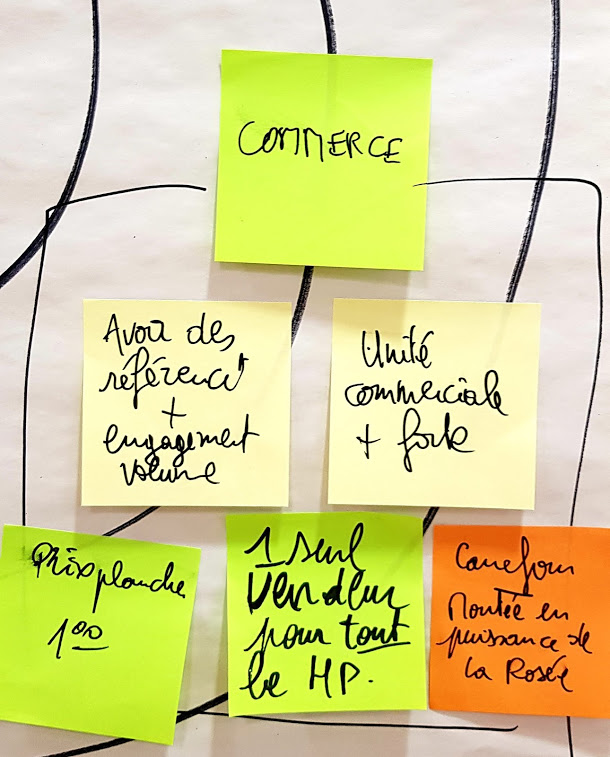 COMMERCE
Avoir des
référencᵗ
+
engagement
volume
Unité
commerciale
+ forte
Prix planché
1⁰⁰
1 seul
Vendeur
pour tout
le HP.
Carrefour
Montée en
puissance de
La Rosée